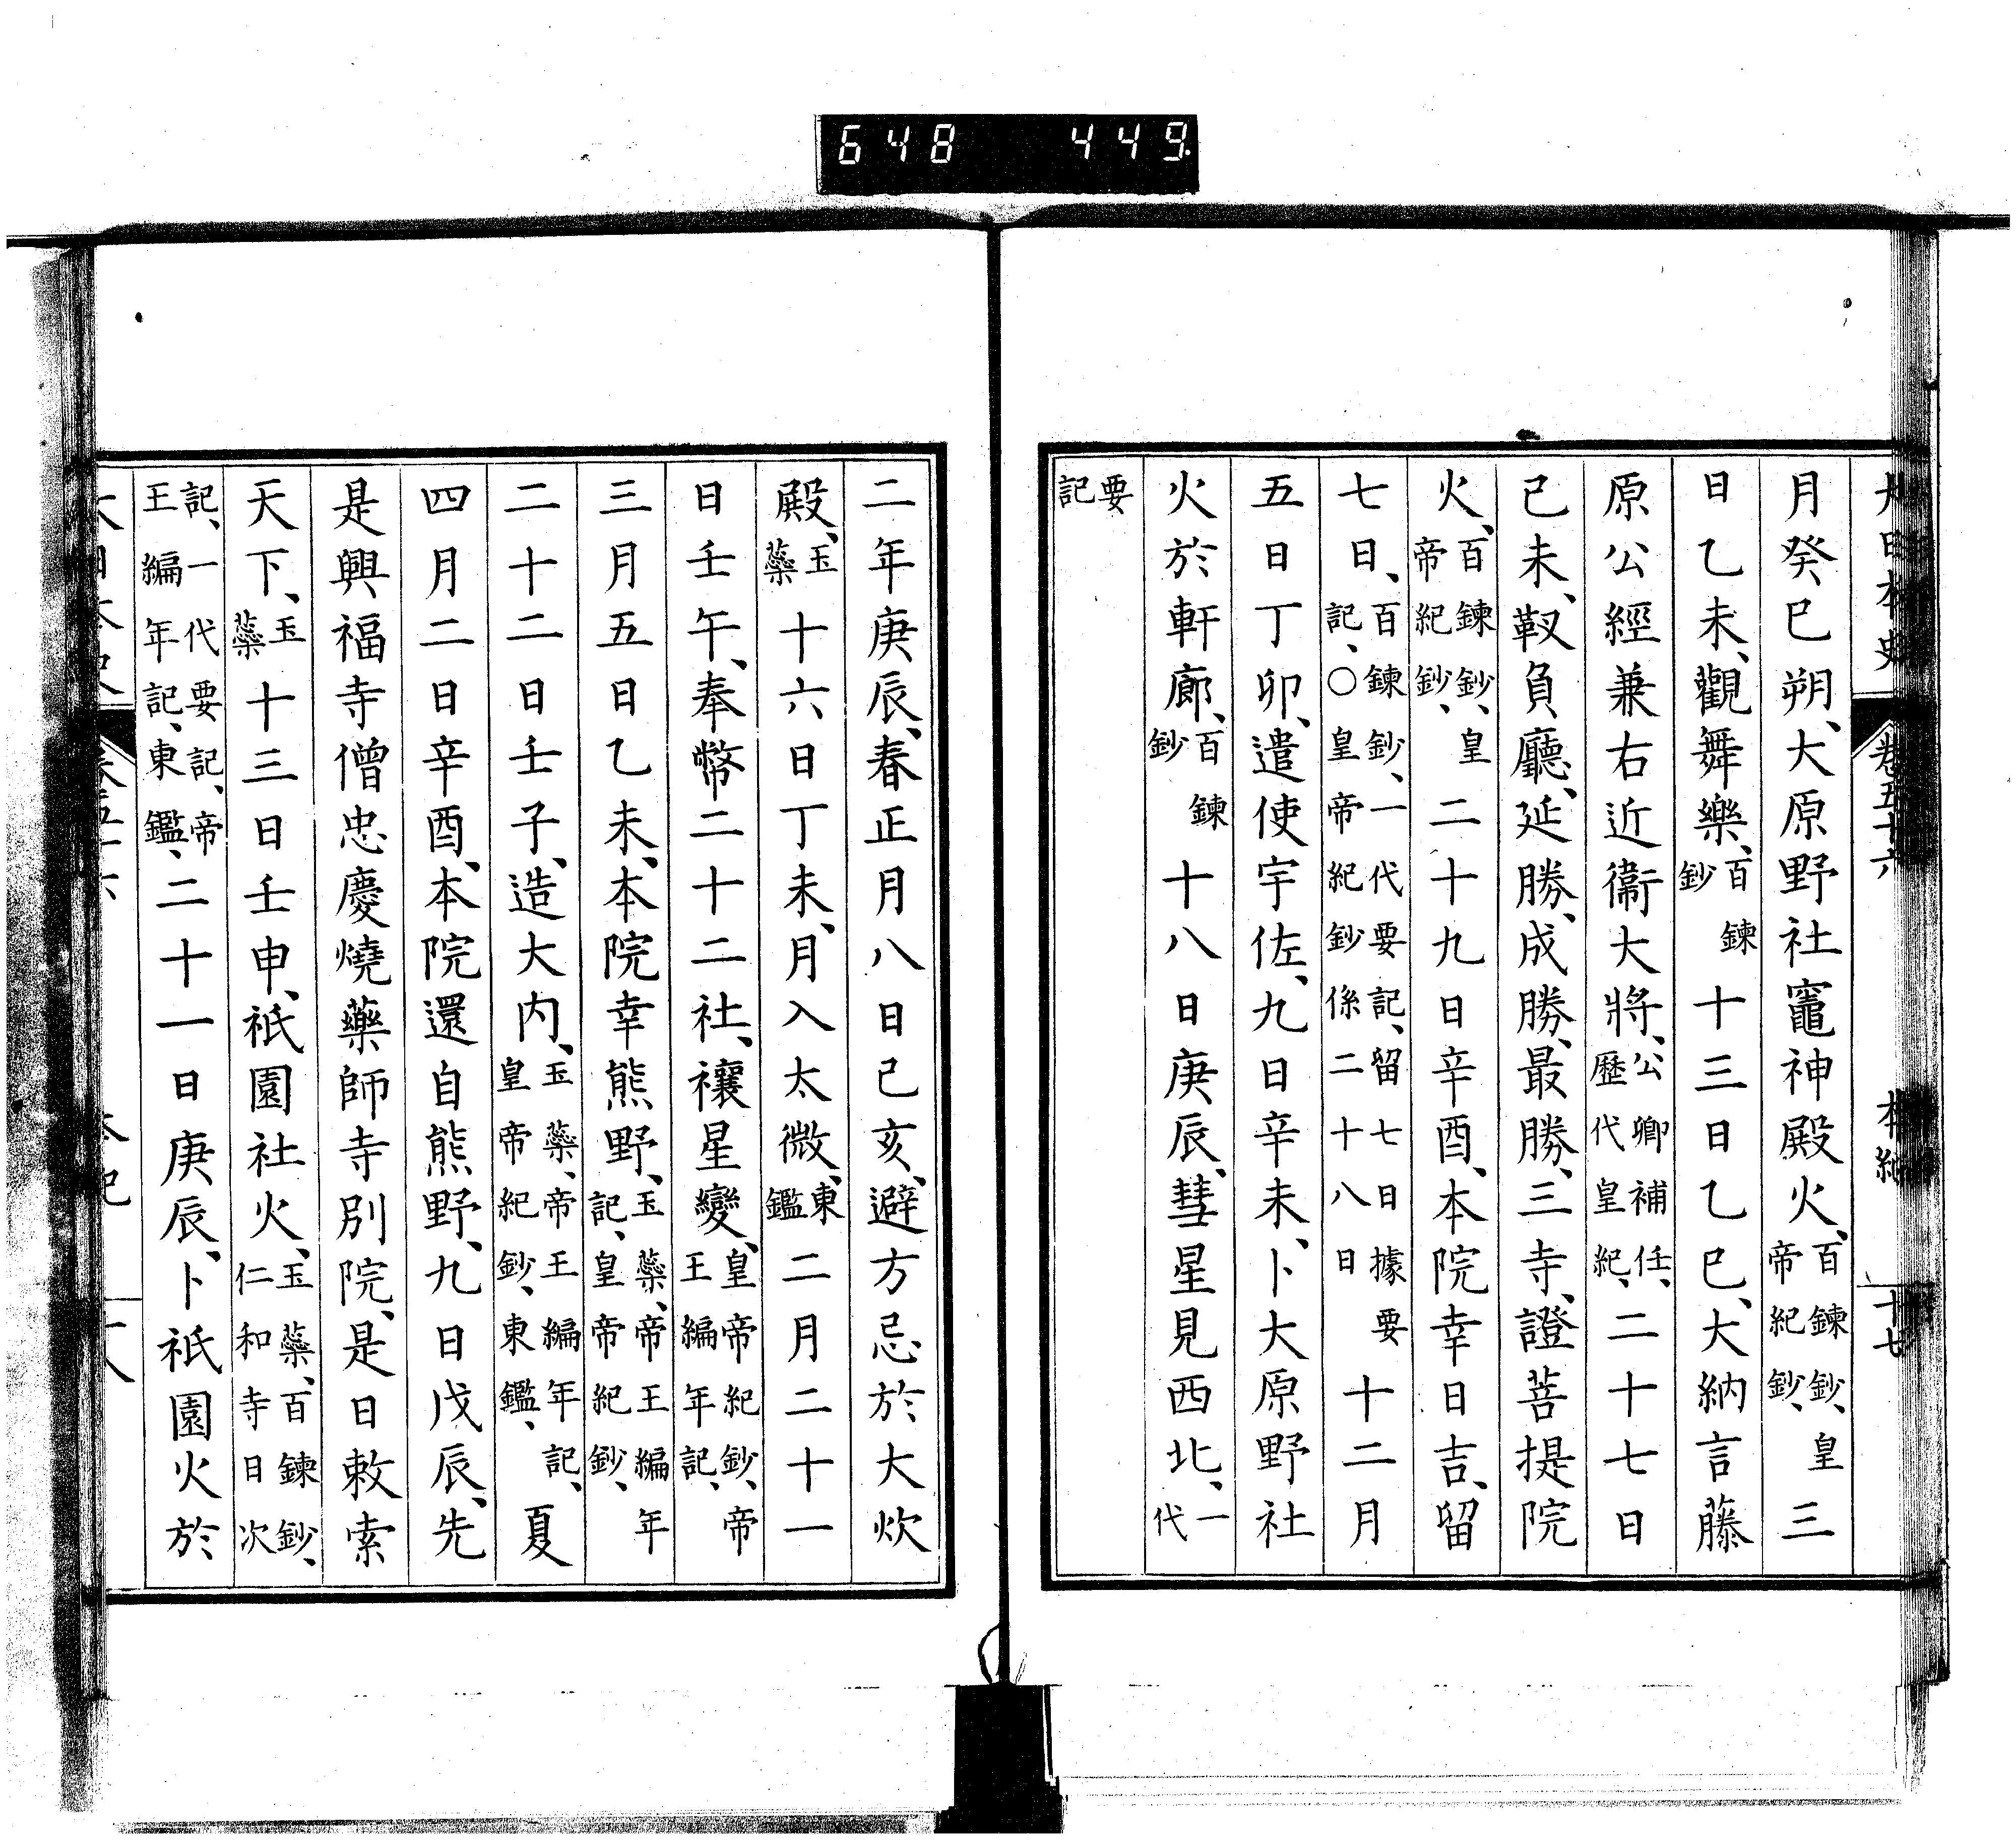 648 449
大日本史 卷五十六 本紀 十七
月癸巳朔、大原野社竈神殿火、百鍊鈔、皇帝紀鈔、三
日乙未、觀舞樂、百鍊鈔十三日乙巳、大納言藤
原公經兼右近衞大將、公卿補任、歷代皇紀、二十七日
己未、靫負廳、延勝、成勝、最勝、三寺、證菩提院
火、百鍊鈔、皇帝紀鈔、二十九日辛酉、本院幸日吉、留
七日、百鍊鈔、一代要記、留七日據要記、○皇帝紀鈔係二十八日十二月
五日丁卯、遣使宇佐、九日辛未、卜大原野社
火於軒廊、百鍊鈔十八日庚辰、彗星見西北、一代
要記
二年庚辰、春正月八日己亥、避方忌於大炊
殿、玉蘂十六日丁未、月入太微、東鑑二月二十一
日壬午、奉幣二十二社、禳星變、皇帝紀鈔、帝王編年記、
三月五日乙未、本院幸熊野、玉蘂、帝王編年記、皇帝紀鈔、
二十二日壬子、造大內、玉蘂、帝王編年記、皇帝紀鈔、東鑑、夏
四月二日辛酉、本院還自熊野、九日戊辰、先
是興福寺僧忠慶燒藥師寺別院、是日敕索
天下、玉蘂十三日壬申、祇園社火、玉蘂、百鍊鈔、仁和寺日次
記、一代要記、帝王編年記、東鑑、二十一日庚辰、卜祇園火於